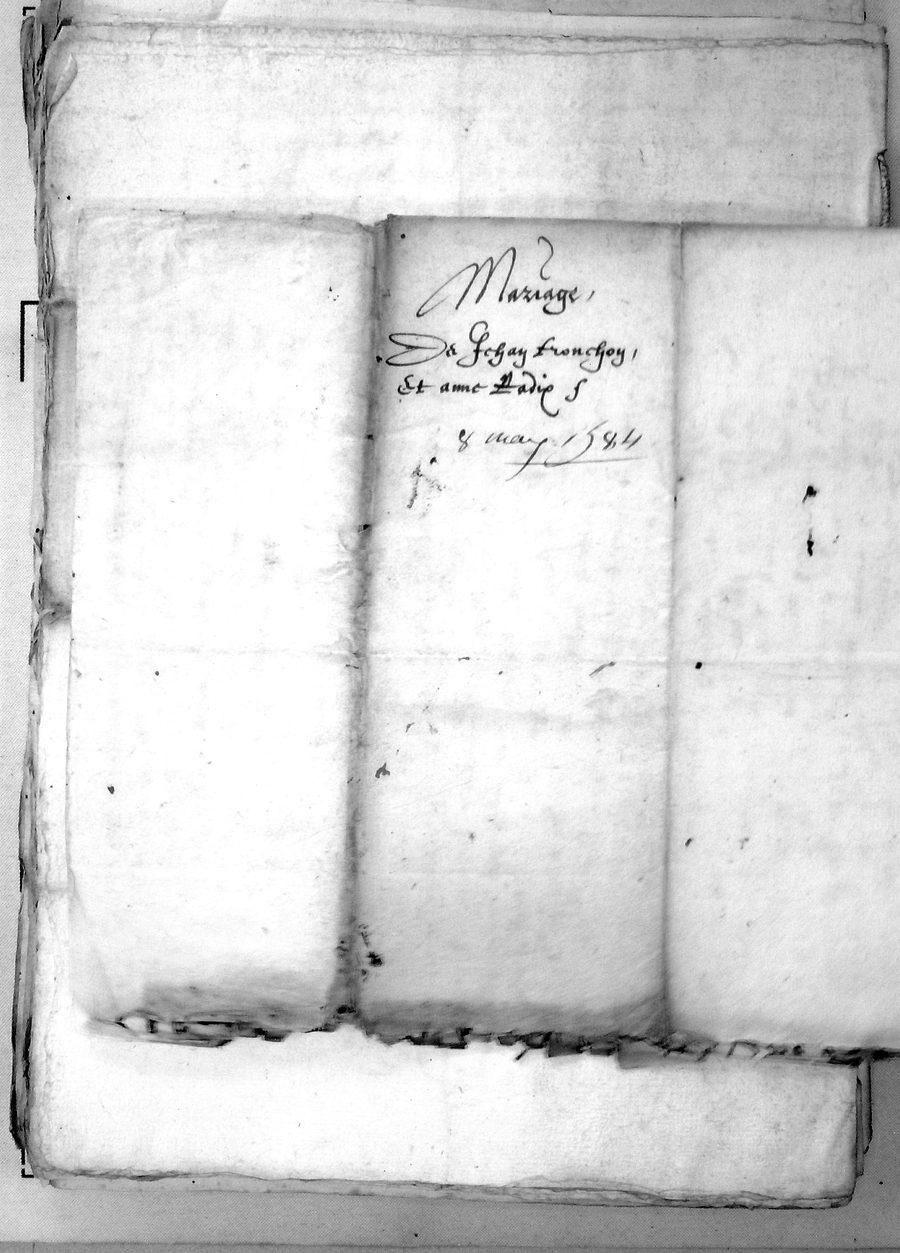 Mariage,
De Jehan tronchoy,
Et anne Radix
8 may 1584